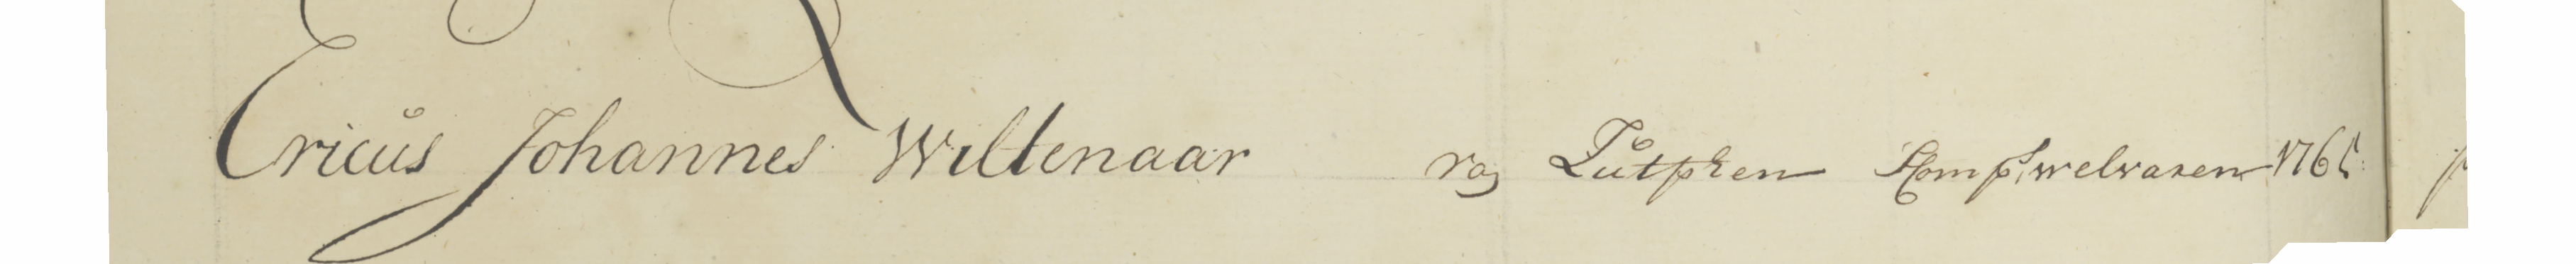 Ericus Johannes Wiltenaar van Zutphen Comps: welvaren 1765: